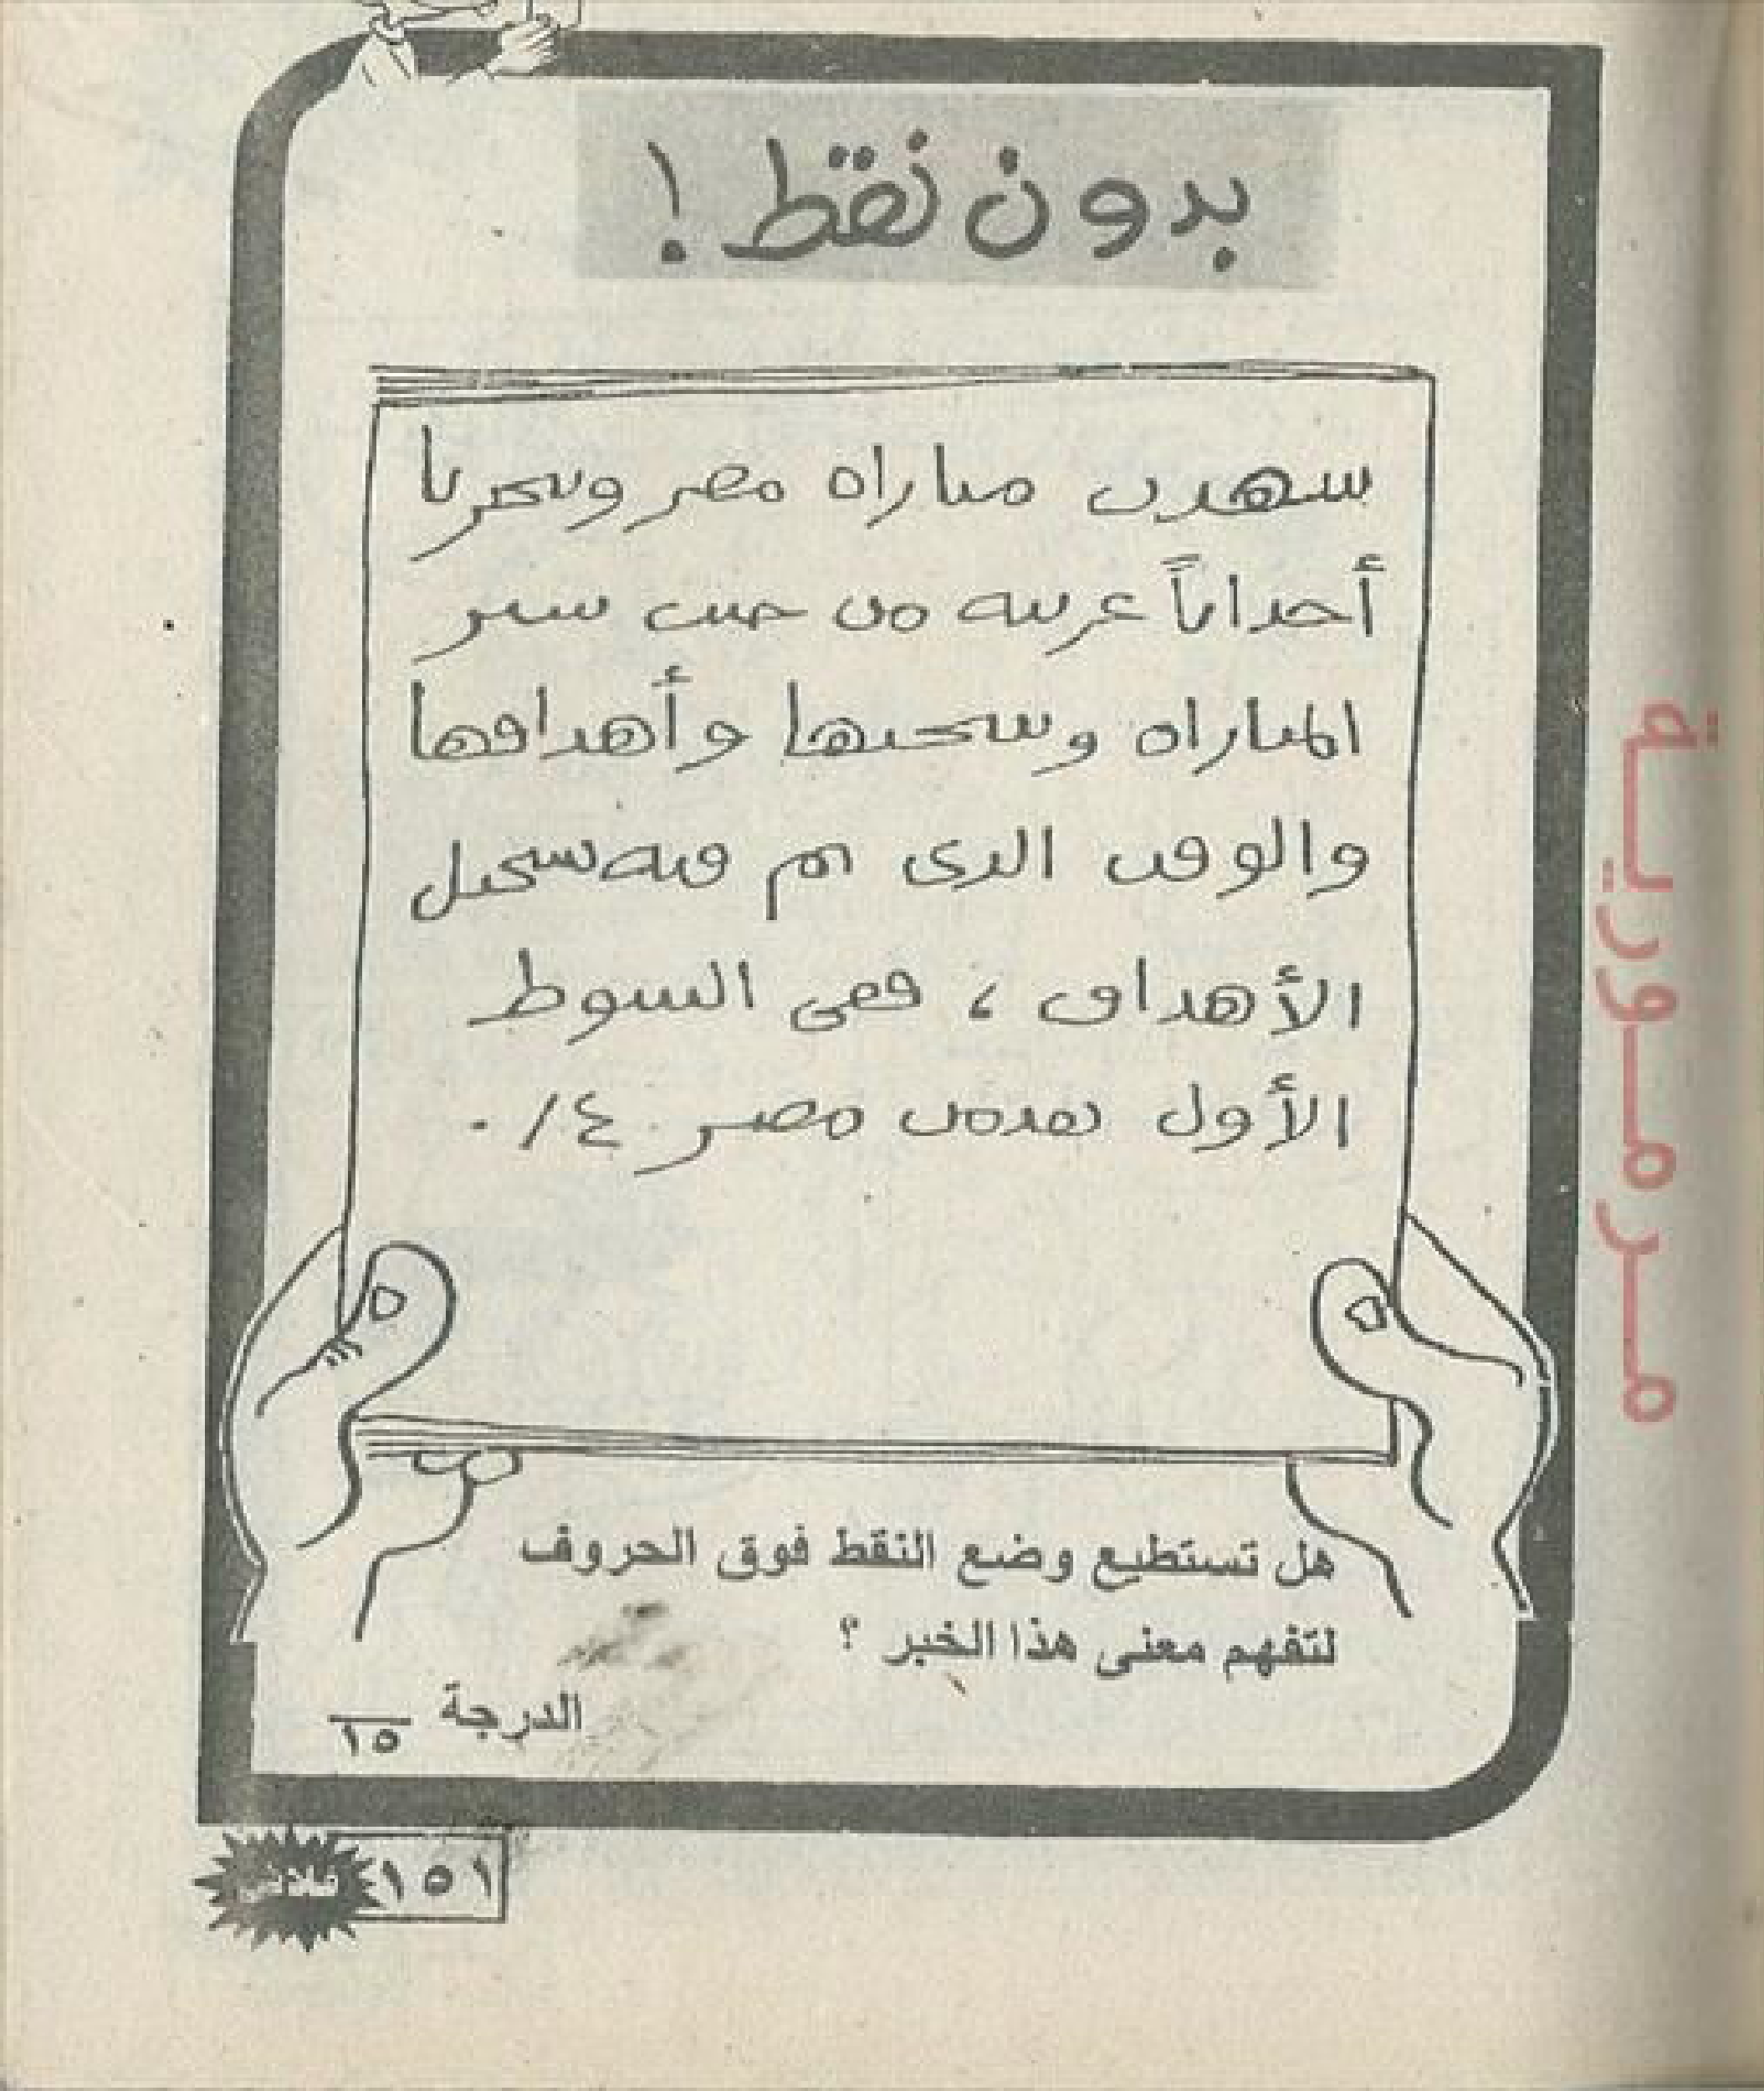 بدون نقط !
سهدٮ مٮاراه مصر وٮىحرىا
أحداٮاً عرٮٮه مں حٮٮ سىر
المٮاراه وسحٮها وأهداڡها
والوڡٮ الدى ٮم ڡٮه ٮسحٮل
الأهداڡ ، ڡڡى السوط
الأول ٮڡدمٮ مصر ٤/٠
هل تستطيع وضع النقط فوق الحروف
لتفهم معنى هذا الخبر ؟
الدرجة ١٥
١٥١
مـرمـوريـة